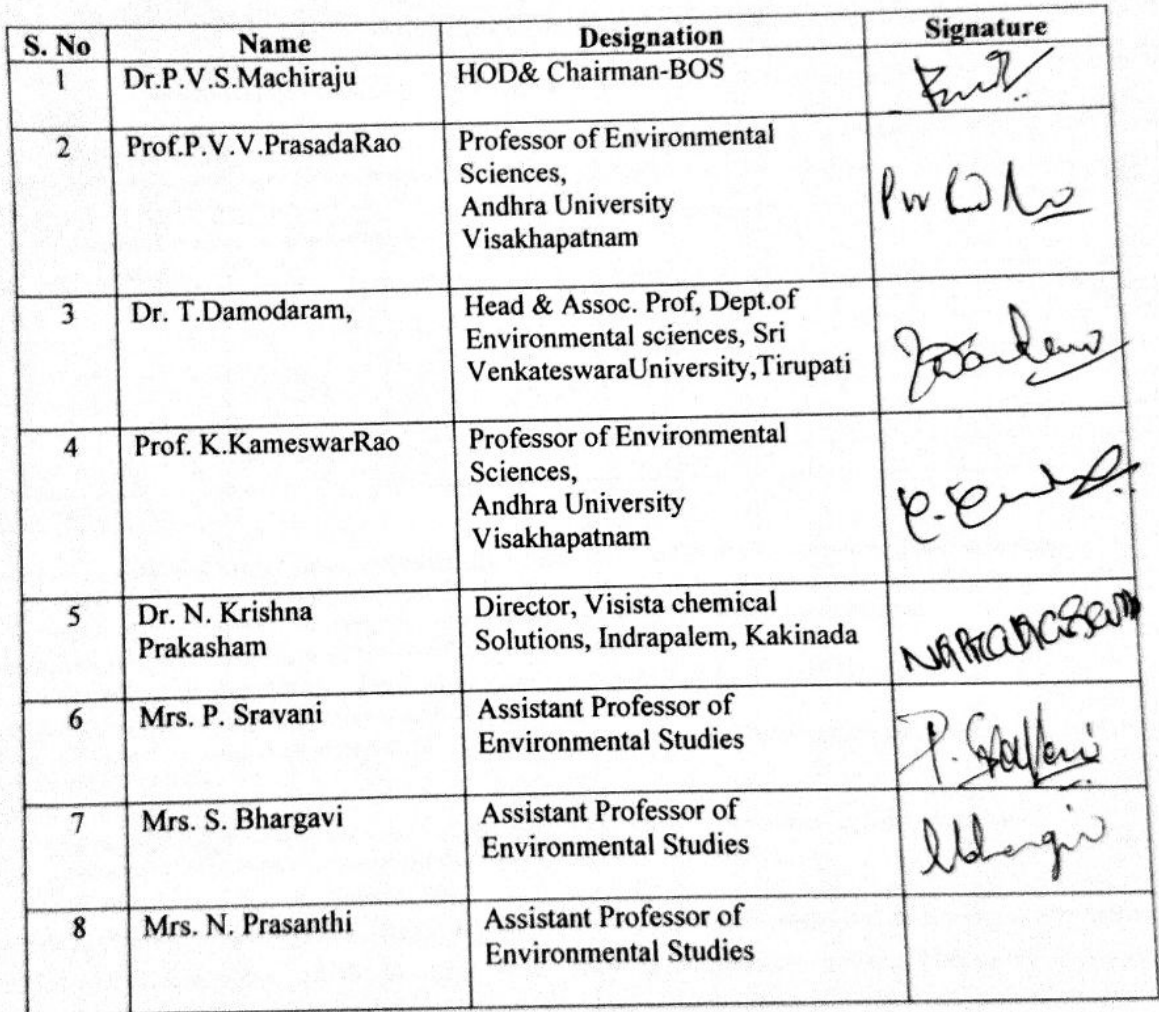 S. No Name Designation Signature
1 Dr.P.V.S.Machiraju HOD& Chairman-BOS
2 Prof.P.V.V.PrasadaRao Professor of Environmental
Sciences,
Andhra University
Visakhapatnam
3 Dr. T.Damodaram, Head & Assoc. Prof, Dept.of
Environmental sciences, Sri
VenkateswaraUniversity,Tirupati
4 Prof. K.KameswarRao Professor of Environmental
Sciences,
Andhra University
Visakhapatnam
5 Dr. N. Krishna Director, Visista chemical
Prakasham Solutions, Indrapalem, Kakinada
6 Mrs. P. Sravani Assistant Professor of
Environmental Studies
7 Mrs. S. Bhargavi Assistant Professor of
Environmental Studies
8 Mrs. N. Prasanthi Assistant Professor of
Environmental Studies